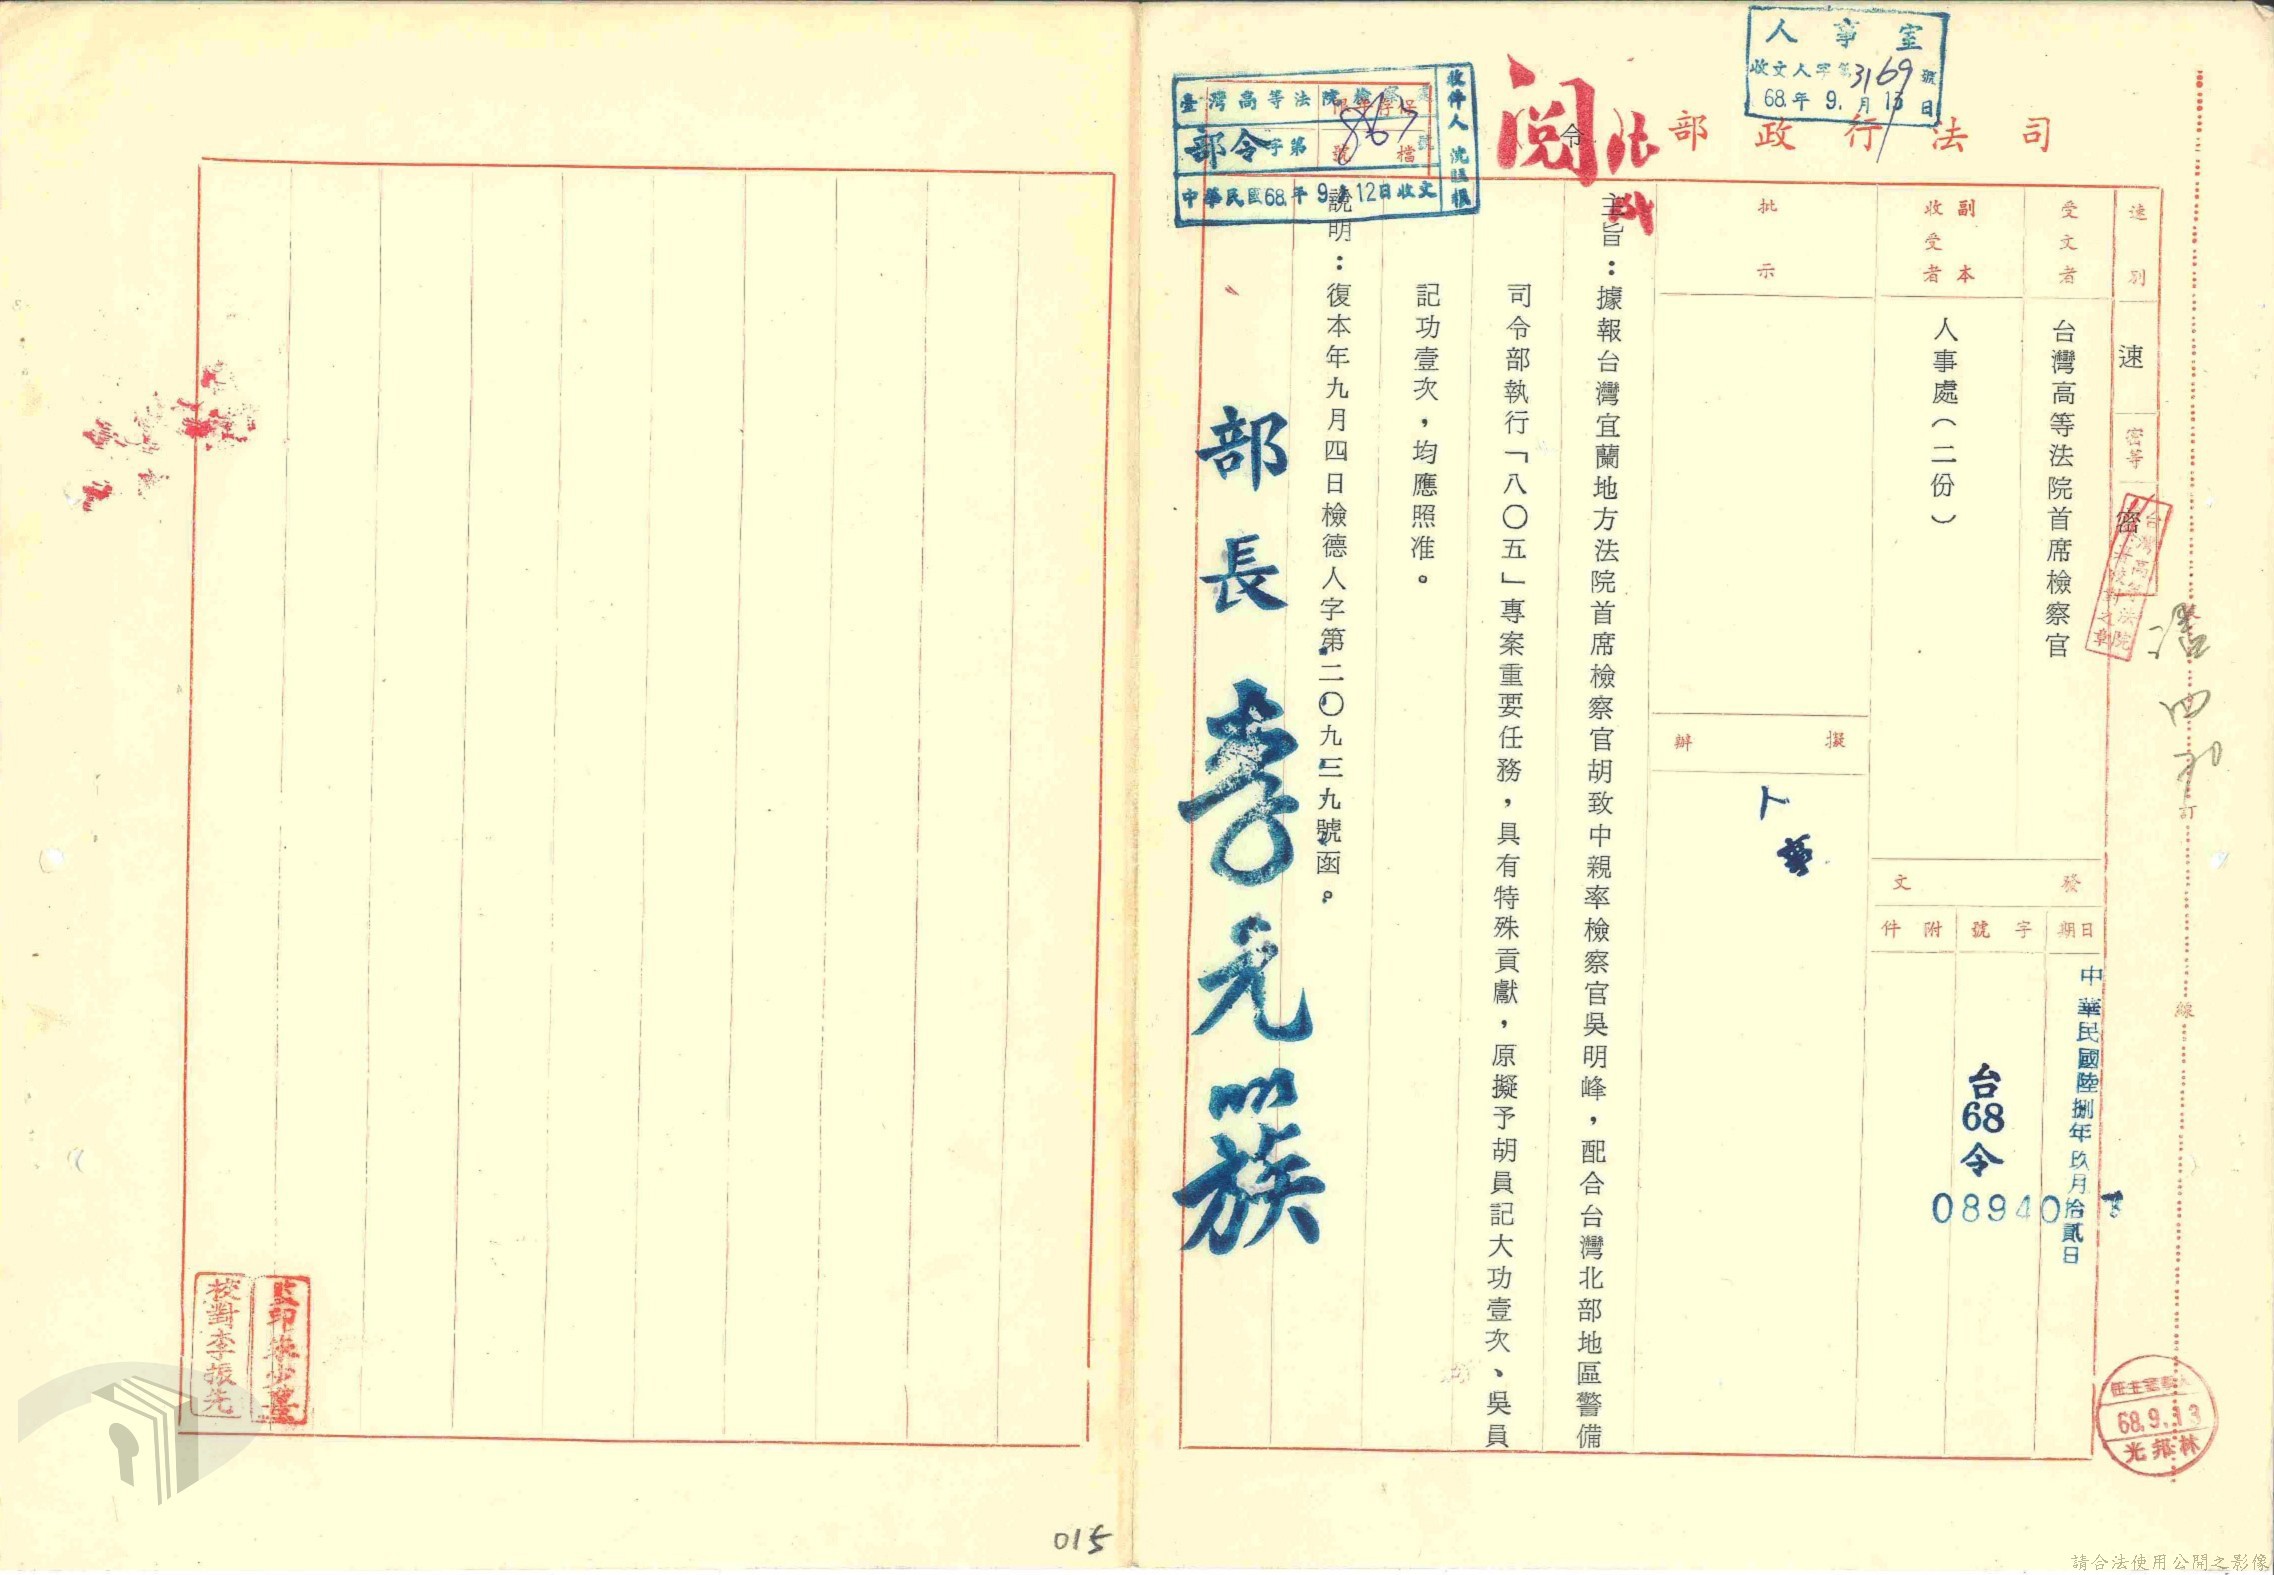 司法行政部
令
閱
人事室
收文人字第3169號
68年9月13日
收件人
臺灣高等法院檢察處
部令字第867號
中華民國68年9月12日收文
檔號
速別
速
密等
密
受文者
台灣高等法院首席檢察官
副本收受者
人事處（二份）
批示
擬辦
發文
日期
中華民國陸捌年玖月拾貳日
字號
台68令
08940
附件
主旨：據報台灣宜蘭地方法院首席檢察官胡致中親率檢察官吳明峰，配合台灣北部地區警備
司令部執行「八〇五」專案重要任務，具有特殊貢獻，原擬予胡員記大功壹次、吳員
記功壹次，均應照准。
說明：復本年九月四日檢德人字第二〇九三九號函。
部長 李元簇
訂
線
人事室主任
68.9.13
林邦光
校對李振先
015
請合法使用公開之影像